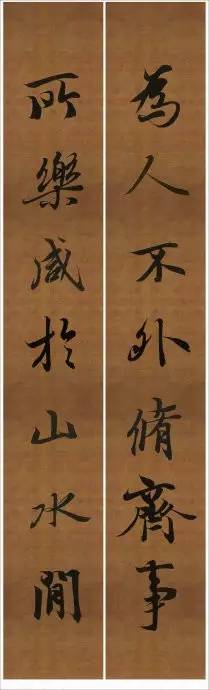 為人不外脩齊事
所樂咸於山水閒